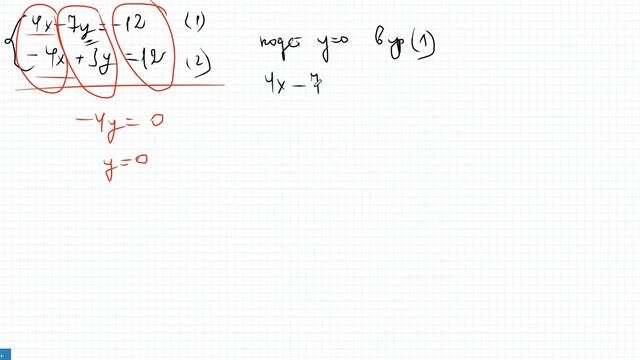 4x - 7y = -12 (1)
-4x + 3y = 12 (2)
-4y = 0
y = 0
подст y=0 в ур (1)
4x - 7